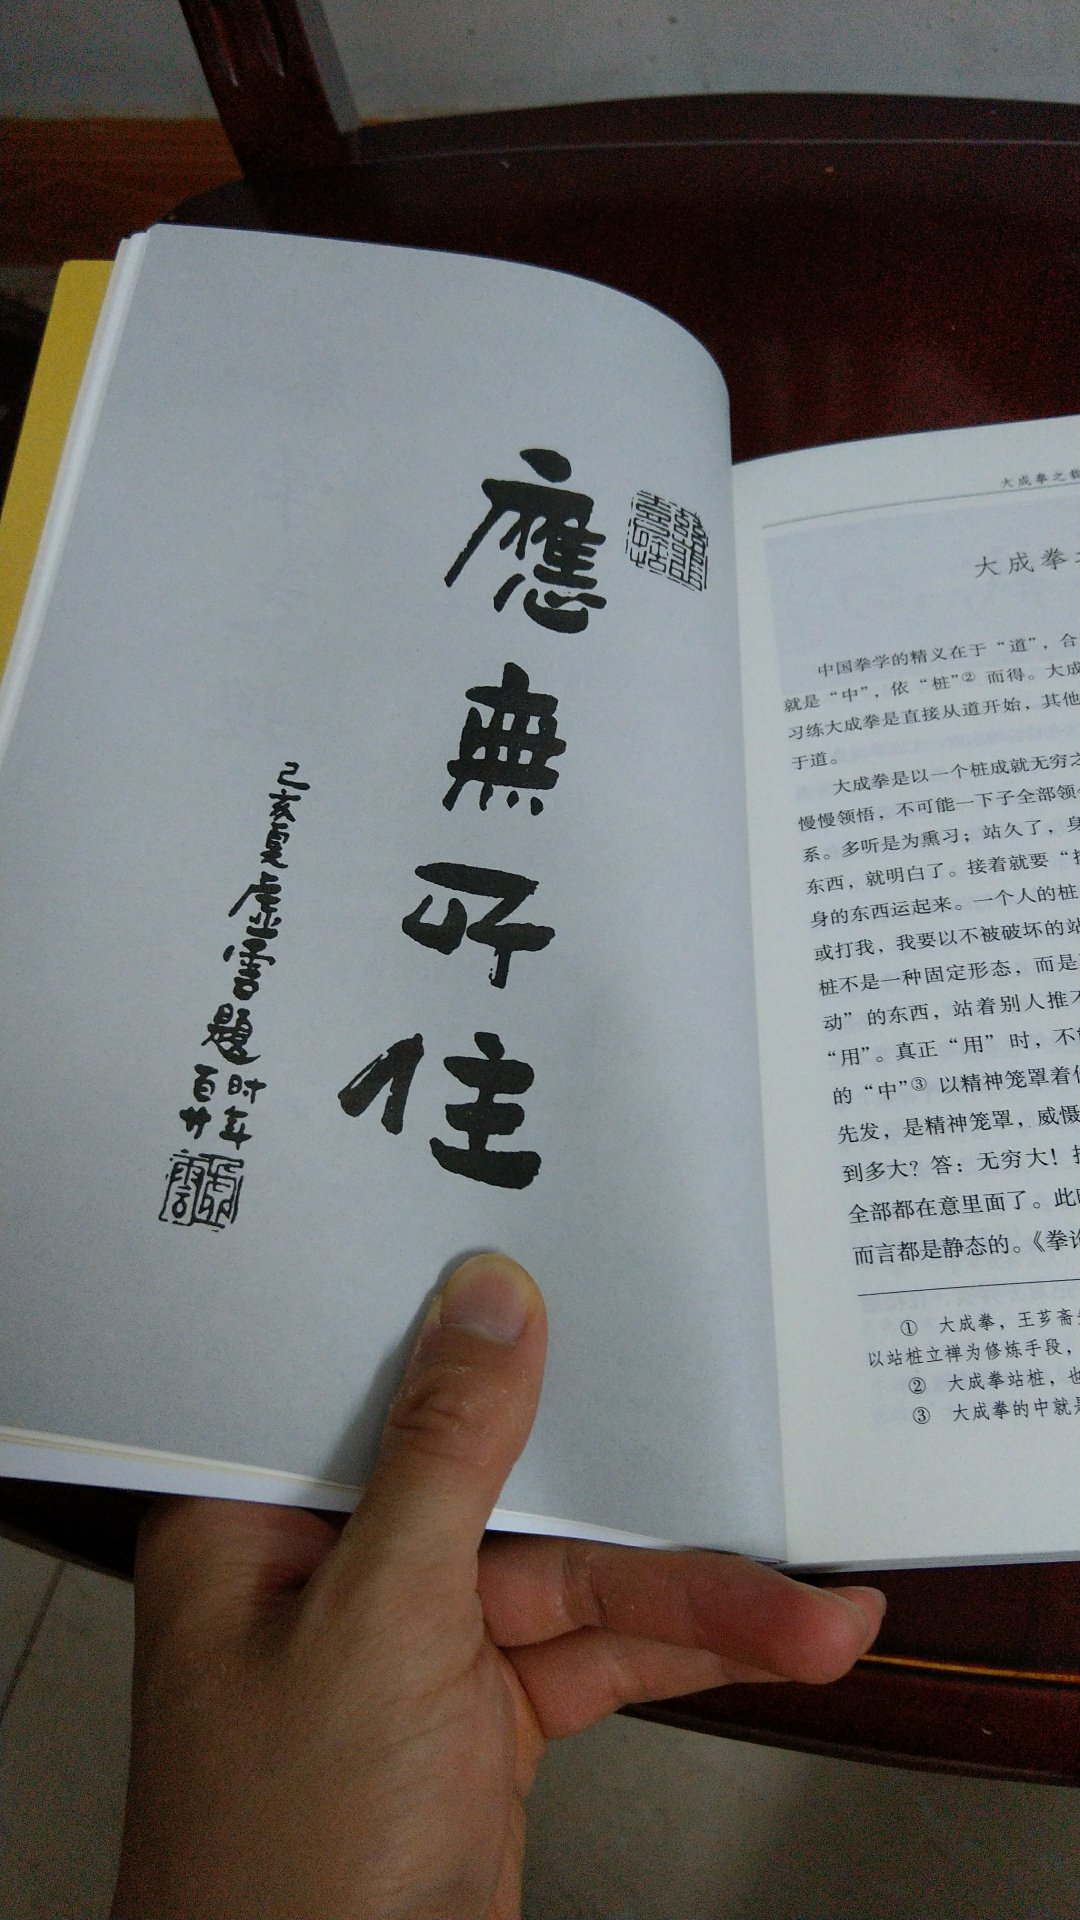 應無所住
己亥夏虛雲題时年
百廿
大成拳之
大成拳
中国拳学的精义在于“道”，合
就是“中”，依“桩”② 而得。大成
习练大成拳是直接从道开始，其他
于道。
大成拳是以一个桩成就无穷之
慢慢领悟，不可能一下子全部领
系。多听是为熏习；站久了，身
东西，就明白了。接着就要“
身的东西运起来。一个人的桩
或打我，我要以不被破坏的站
桩不是一种固定形态，而是
动”的东西，站着别人推不
“用”。真正“用”时，不
的“中”③ 以精神笼罩着
先发，是精神笼罩，威慑
到多大？答：无穷大！
全部都在意里面了。此
而言都是静态的。《拳论
① 大成拳，王芗斋
以站桩立禅为修炼手段，
② 大成拳站桩，也
③ 大成拳的中就是